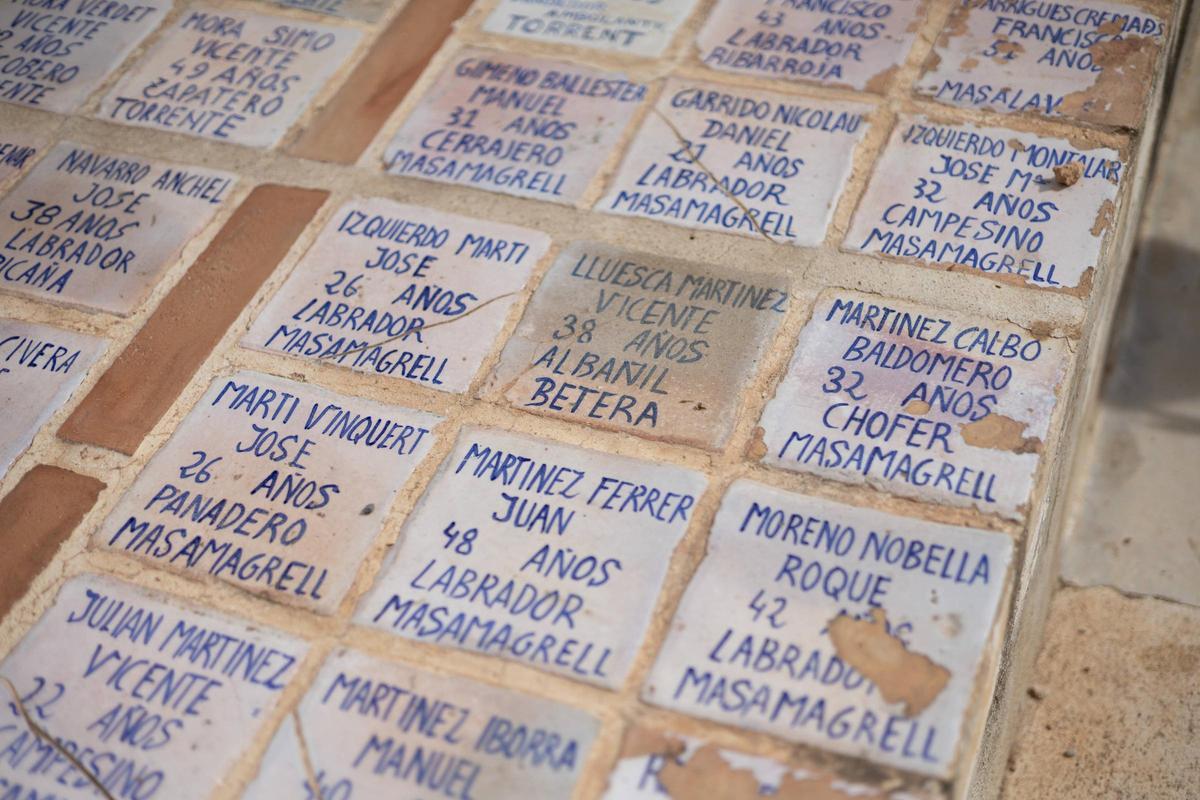 MORA VERDET
VICENTE
AÑOS
MORA SIMO
VICENTE
49 AÑOS
ZAPATERO
TORRENTE
AMBULANTE
TORRENT
FRANCISCO
43 AÑOS
LABRADOR
RIBARROJA
GARRIGUES CREMADS
FRANCISC
AÑO
MASALAV
NAVARRO ANCHEL
JOSE
38 AÑOS
LABRADOR
GIMENO BALLESTER
MANUEL
31 AÑOS
CERRAJERO
MASAMAGRELL
GARRIDO NICOLAU
DANIEL
27 AÑOS
LABRADOR
MASAMAGRELL
IZQUIERDO MONTALAR
JOSE Mª
32 AÑOS
CAMPESINO
MASAMAGRELL
CIVERA
IZQUIERDO MARTI
JOSE
26 AÑOS
LABRADOR
MASAMAGRELL
LLUESCA MARTINEZ
VICENTE
38 AÑOS
ALBAÑIL
BETERA
MARTINEZ CALBO
BALDOMERO
32 AÑOS
CHOFER
MASAMAGRELL
MARTI VINQUERT
JOSE
26 AÑOS
PANADERO
MASAMAGRELL
MARTINEZ FERRER
JUAN
48 AÑOS
LABRADOR
MASAMAGRELL
MORENO NOBELLA
ROQUE
42
LABRADO
MASAMAGRELL
JULIAN MARTINEZ
VICENTE
22 AÑOS
CAMPESINO
MARTINEZ IBORRA
MANUEL